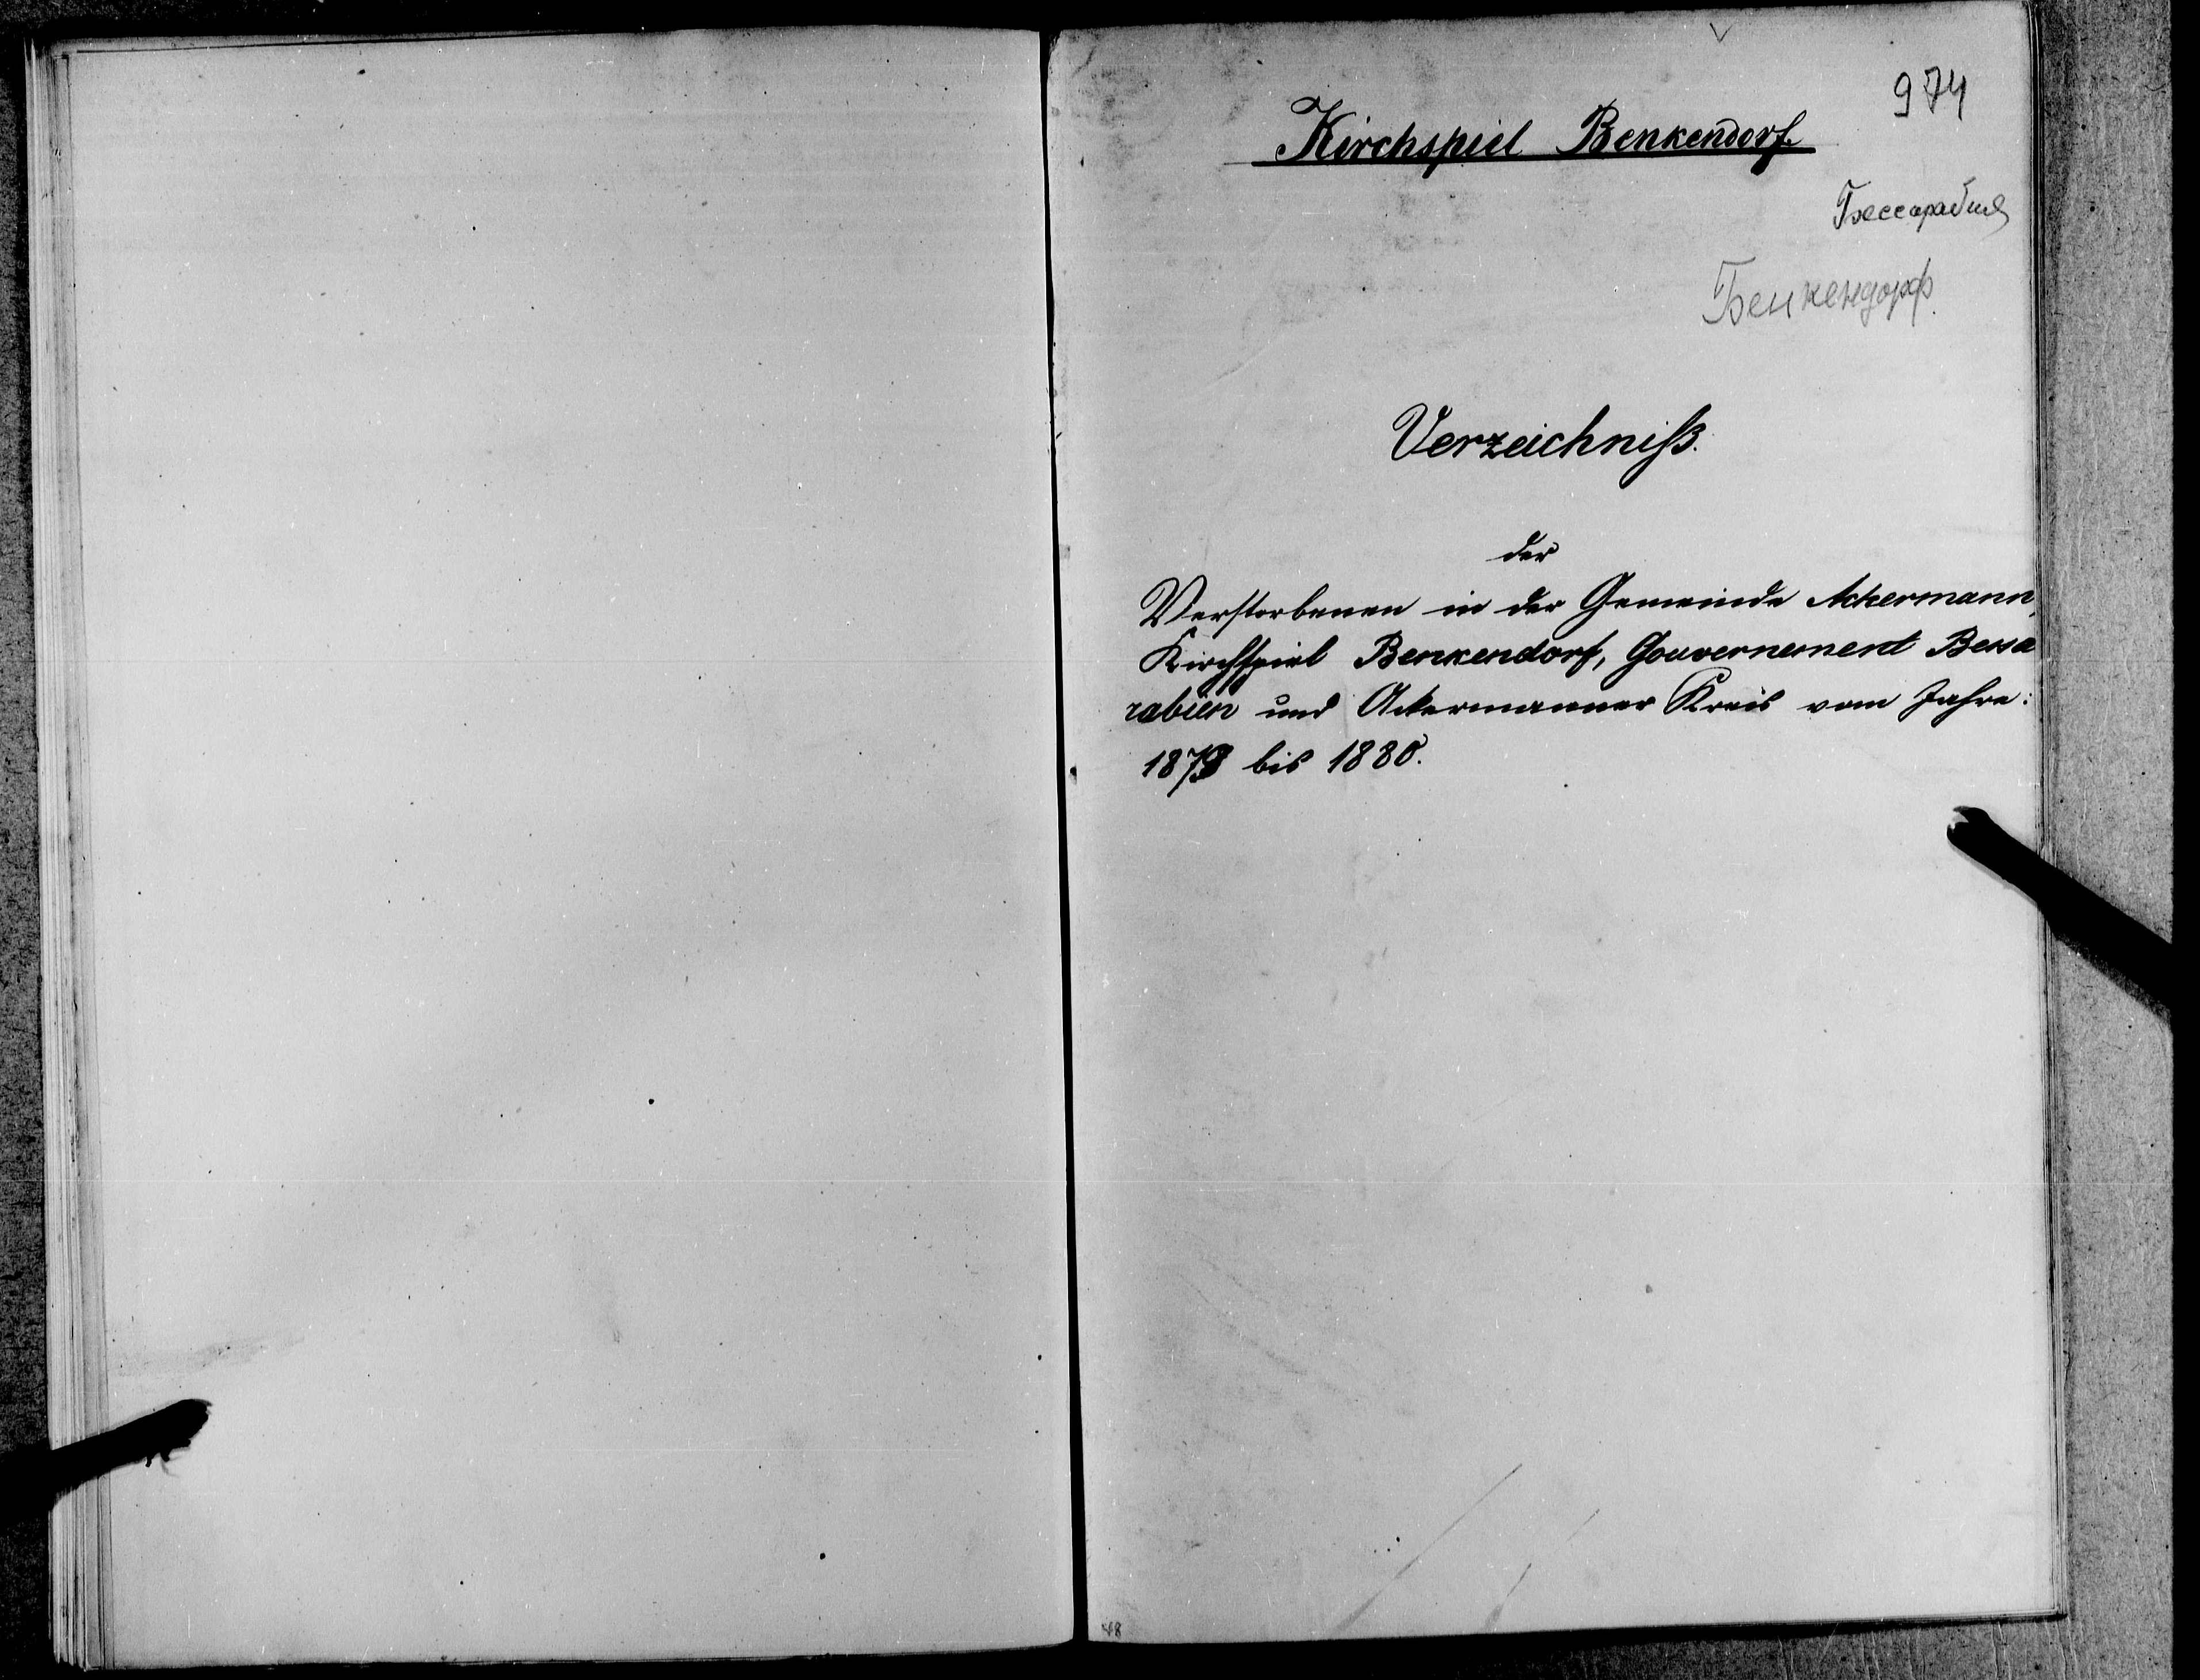 974
Kirchspiel Benkendorf.
Бессарабия
Бенкендорф.
Verzeichniß.
der
Verstorbenen in der Gemeinde Ackermann,
Kirchspiel Benkendorf, Gouvernement Bessa
rabien und Ackermanner Kreis vom Jahre:
bis 1880.
48